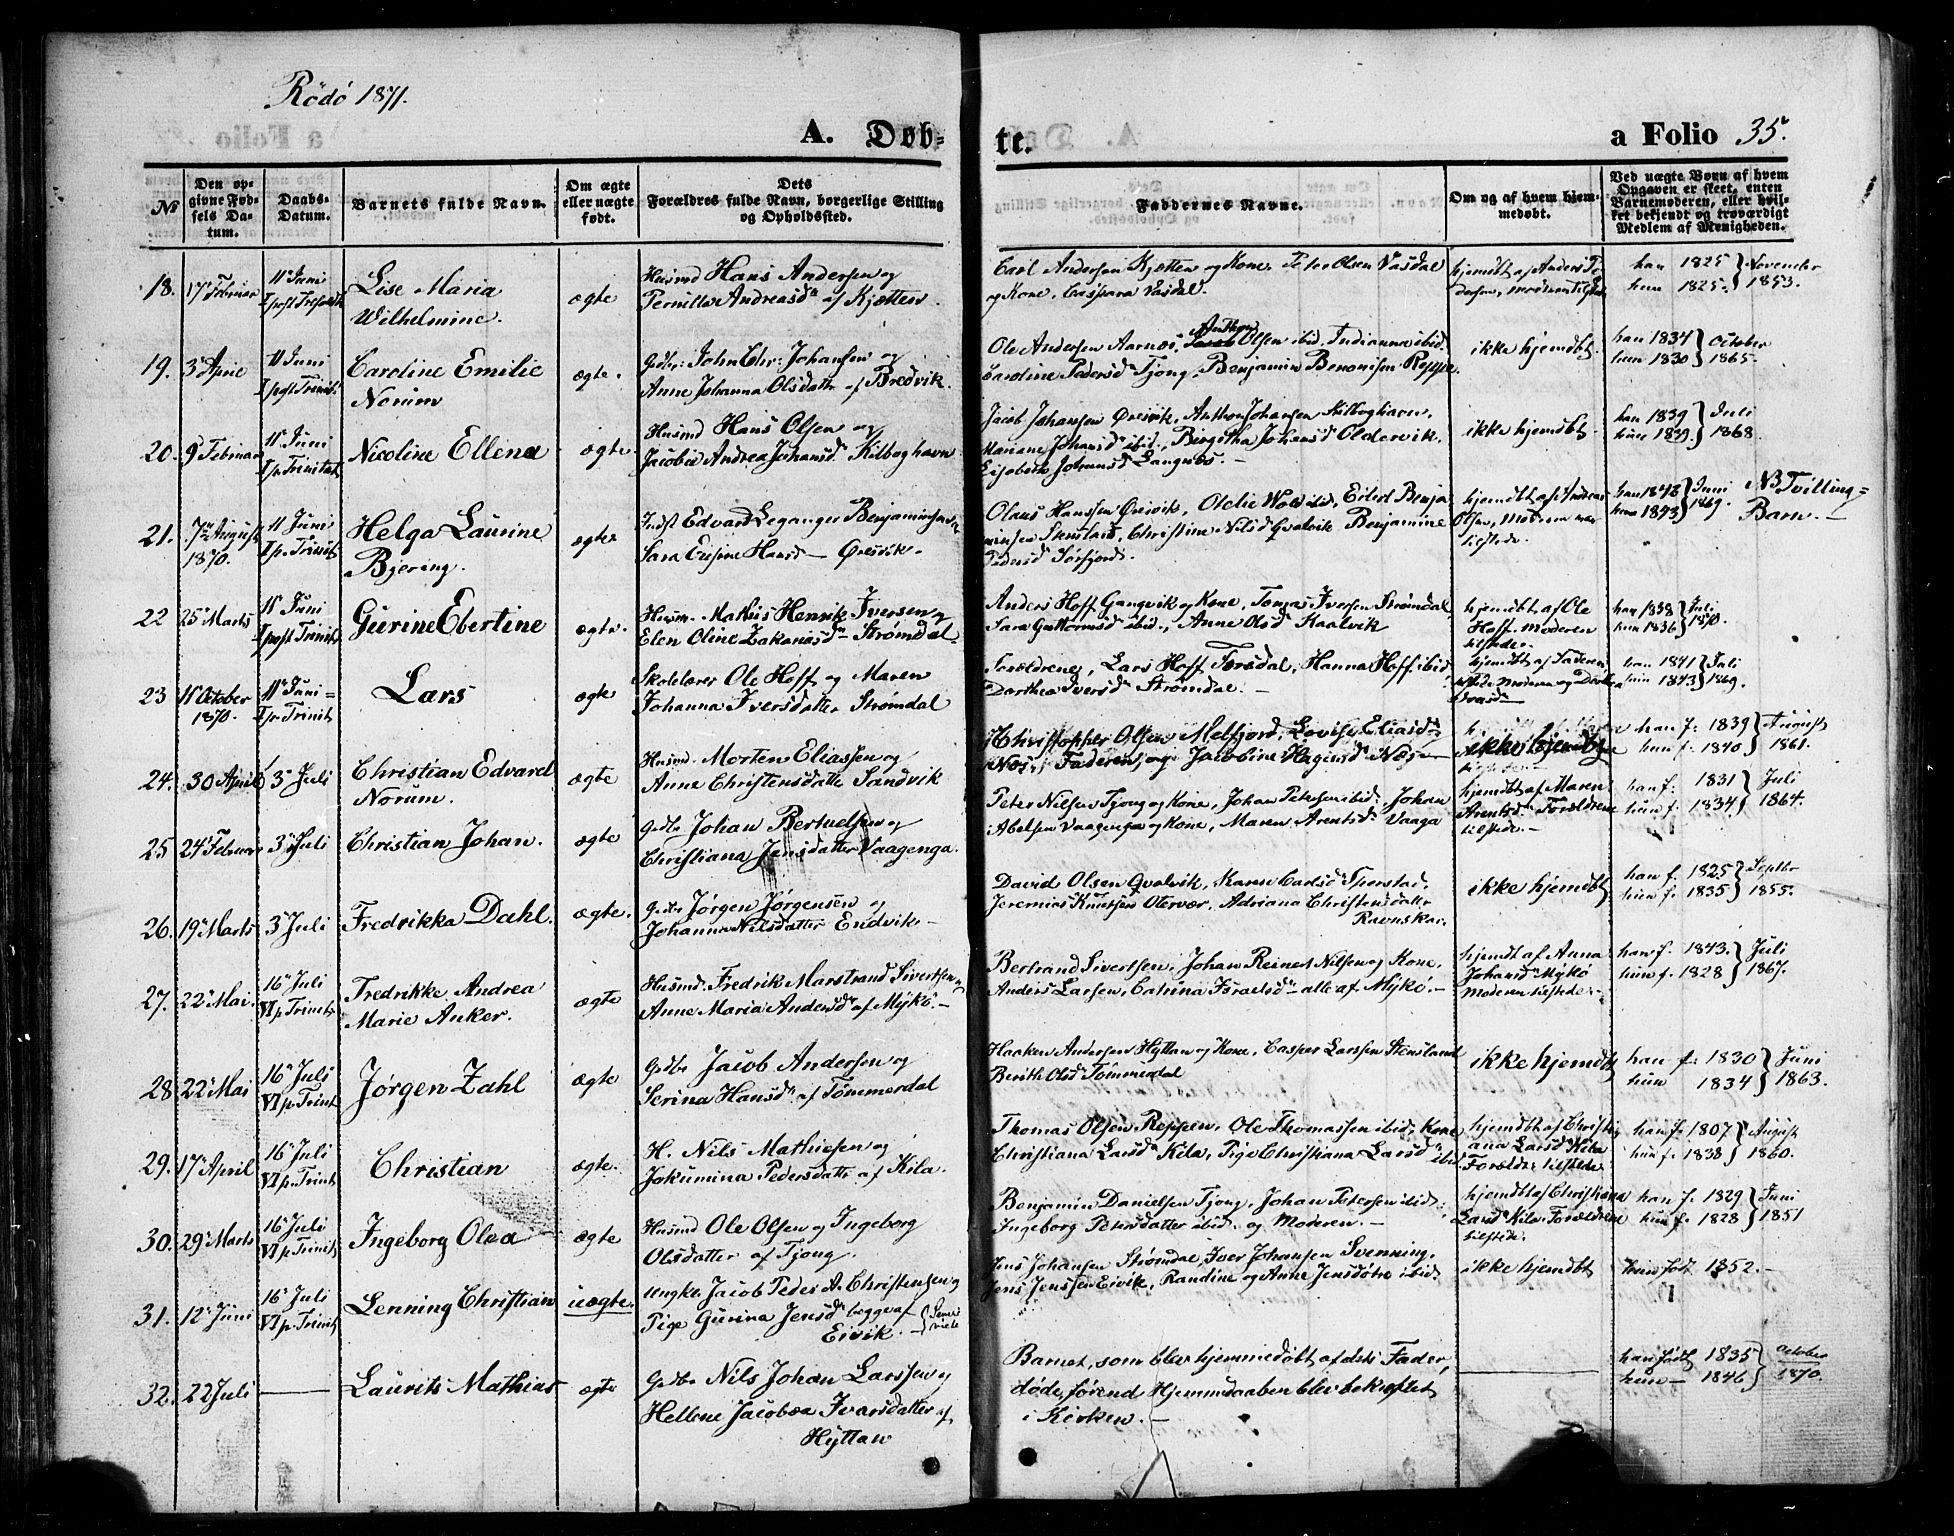 Rödö 1871.
A. Døb-
te.
a Folio 35.
№
Den op-
givne Fød-
sels Da-
tum.
Daabs-
Datum.
Barnets fulde Navn.
Om ægte
eller uægte
født.
Dets
Forældres fulde Navn, borgerlige Stilling
og Opholdssted.
Faddernes Navne.
Om og af hvem hjem-
medøbt.
Ved uægte Børn af hvem
Opgaven er skeet, enten
Barnemoderen, eller hvil-
ket bekjendt og troværdigt
Medlem af Menigheden.
18. 17 Februar
11 Juni
Lise Maria
Wilhelmine.
ægte
Husmd Hans Andersen og
Pernilla Andreasd af Kjætten.
Carl Andersen Kjætten og Kone, Peter Olsen Vasdal
og Kone, Caspara Vasdal.
han 1825
hun 1825.
November
1853.
19. 3 April
11 Juni
I post Trinit.
Caroline Emilie
Norum
ægte.
Gdbr: John Chr: Johansen og
Anne Johanna Olsdatter af Bredvik.
Ole Andersen Aarnes, Anthon Olsen ibid, Indianna ibid.
Caroline Pedersd Tjong, Benjamin Benonisen Reppe.
ikke hjemdbt.
han 1834
hun 1830
October
1865.
20. 9 Februar
11 Juni
I p. Trinitat.
Nicoline Ellena
ægte
Husmd Hans Olsen og
Jacobie Andrea Johansd Kilboghavn
Jacob Johansen Øresvik, Anthon Johansen Kilboghavn,
Mariane Johansd ibid., Bergitha Johansd Oldervik,
Elisabeth Johannsd Langnæs.
ikke hjemdbt
han 1839
hun 1839.
Juli
1868.
21. 7 August
1870.
11 Juni
I p. Trinit.
Helga Laurine
Bjering.
ægte
Indst Edvard Leganger Benjaminsen
Sara Eusine Hansd — Øresvik.
Olaus Hanssen Øresvik, Oldelie Wold ibid, Eilert Benja
minsen Stensland, Christine Nilsd Qvalvik Benjamine
Pedersd Sørfjord.
hjemdbt af Andreas
Olsen, Moderen var
tilstede.
han 1848
hun 1843
Juni
1869.
NB Tvilling=
Barn.
22 25 Marts
11 Juni
I post Trinit.
Gurine Ebertine
ægte.
Husm. Mathis Henrik Iversen og
Elen Oline Zakariasd Strømdal
Anders Hoff Gangvik og Kone, Tomas Iversen Strømdal,
Sara Guttormsd ibid., Anne Olsd Kaalvik
hjemdbt af Ole
Hoff. Moderen
tilstede.
han 1838
hun 1836
Juli
1870.
23 11 October
1870.
11 Juni
I p. Trinit.
Lars
ægte
Skolelærer Ole Hoff og Maren
Johanna Iversdatter Strømdal
Forældrene, Lars Hoff Forsdal, Hanna Hoff ibid,
Dorthea Iversd Strømdal.
hjemdbt af Faderen
han 1841
hun 1843
Juli
1869.
24. 30 April
3 Juli
Christian Edvard
Norum.
ægte
Husmd. Morten Eliassen og
Anne Christensdatter Sandvik
Christopher Olsen Melfjord, Lovise Eliasd
Næs, Faderen, og Jacobine Haginsd Næs
han f. 1839
hun f. 1840
August
1861.
25 24 Februar
3 Juli
Christian Johan.
ægte
Gdbr Johan Bertuelsen og
Christiana Jensdatter Vaagenga.
Peter Nilsen Tjong og Kone, Johan Petersen ibid. Johan
Abelsen Vaagenga og Kone, Maren Arentsd Vaaga
hjemdbt af Maren
Arentsd. Forældrene
tilstede.
han f. 1831
hun f. 1834
Juli
1864.
26. 19 Marts
3 Juli
Fredrikka Dahl.
ægte.
Gdbr Jørgen Jørgensen og
Johanna Nilsdatter Endvik
David Olsen Qvalvik, Maren Carlsd Tjerstad,
Jeremias Knutsen Otervær, Adriana Christensdatter
Ravnskar.
ikke hjemdbt
han f. 1825
hun f. 1835
Septbr
1855.
27. 22 Mai.
16 Juli
VI p. Trinit.
Fredrikke Andrea
Marie Anker.
ægte
Husmd. Fredrik Marstrand Sivertsen og
Anne Maria Andersd af Mykö.
Bertrand Sivertsen, Johan Reinert Nilsen og Kone,
Anders Larsen, Catrina Israelsd — alle af Mykö.
hjemdbt af Anna
Johansd Mykö
Moderen tilstede.
han f. 1843.
hun f. 1828
Juli
1867.
28 22 Mai
16 Juli
VI p. Trinit.
Jørgen Zahl
ægte
Gdbr Jacob Andersen og
Serina Hansd af Tømmerdal
Haaken Andersen Hyttan og Kone, Casper Larssen Stensland
Berith Olsd Tømmerdal
ikke hjemdbt
han f. 1830
hun 1834
Juni
1863.
29. 17 April
16 Juli
VI p. Trinit
Christian
ægte.
H. Nils Mathiesen og
Jokumina Pedersdatter af Kila
Thomas Olsen Reppen, Ole Thomassen ibid, Kone
Christiana Larsd Kila, Pige Christiana Larsd ibid.
hjemdbt af Christi
ana Larsd Kila
Forældr: tilstede.
han f. 1807
hun f. 1838
August
1860.
30. 29 Marts
16 Juli
VI p. Trinit.
Ingeborg Olea
ægte
Husmd Ole Olsen og Ingeborg
Olsdatter af Tjong.
Benjamin Danielsen Tjong, Johan Petersen ibid,
Ingeborg Petersdatter ibid. og Moderen.
hjemdbt af Christiana
Larsd Kila. Forældrene
tilstede.
han f. 1829
hun f. 1828
Juni
1851
31. 12 Juni
16 Juli
VI p. Trinit
Lenning Christian
uægte.
Ungk. Jacob Peder A. Christensen og
Pige Gurina Jensd begge af
Eivik.
Jens Johansen Strømdal, Iver Johansen Svenning,
Jens Jenssen Eivik, Randine og Anne Jensdøtre ibid.
ikke hjemdbt
hun født 1852.
32. 22 Juli
Laurits Mathias
ægte
Gdbr Nils Johan Larssen og
Hellene Jacobæa Ivarsdatter af
Hyttan
Barnet, som blev hjemmedøbt af dets Fader,
døde, førend Hjemmedaaben blev bekræftet
i Kirken.
han født 1835
hun — 1846
October
1870.